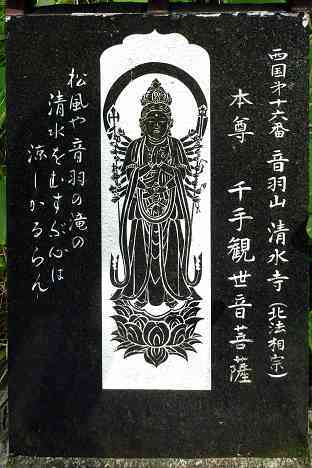 西国第十六番 音羽山 清水寺(北法相宗)
本尊 千手観世音菩薩
松風や音羽の滝の
清水をむすぶ心は
涼しかるらん